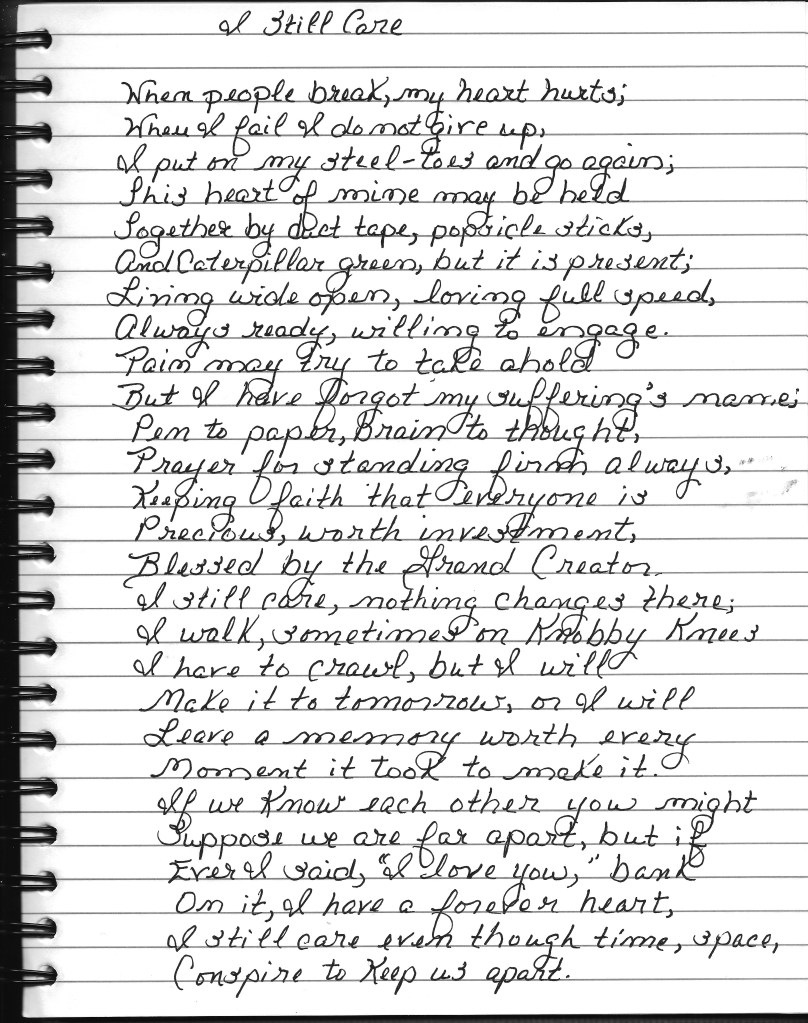 I Still Care
When people break, my heart hurts;
When I fail I do not give up,
I put on my steel-toes and go again;
This heart of mine may be held
Together by duct tape, popsicle sticks,
And Caterpillar green, but it is present;
Living wide open, loving full speed,
Always ready, willing to engage.
Pain may try to take ahold
But I have forgot my suffering's name;
Pen to paper, Brain to thought,
Prayer for standing firm always,
Keeping faith that everyone is
Precious, worth investment,
Blessed by the Grand Creator.
I still care, nothing changes there;
I walk, sometimes on Knobby Knees
I have to crawl, but I will
Make it to tomorrow, or I will
Leave a memory worth every
Moment it took to make it.
If we Know each other you might
Suppose we are far apart, but if
Ever I said, "I love you," bank
On it, I have a forever heart,
I still care even though time, space,
Conspire to Keep us apart.